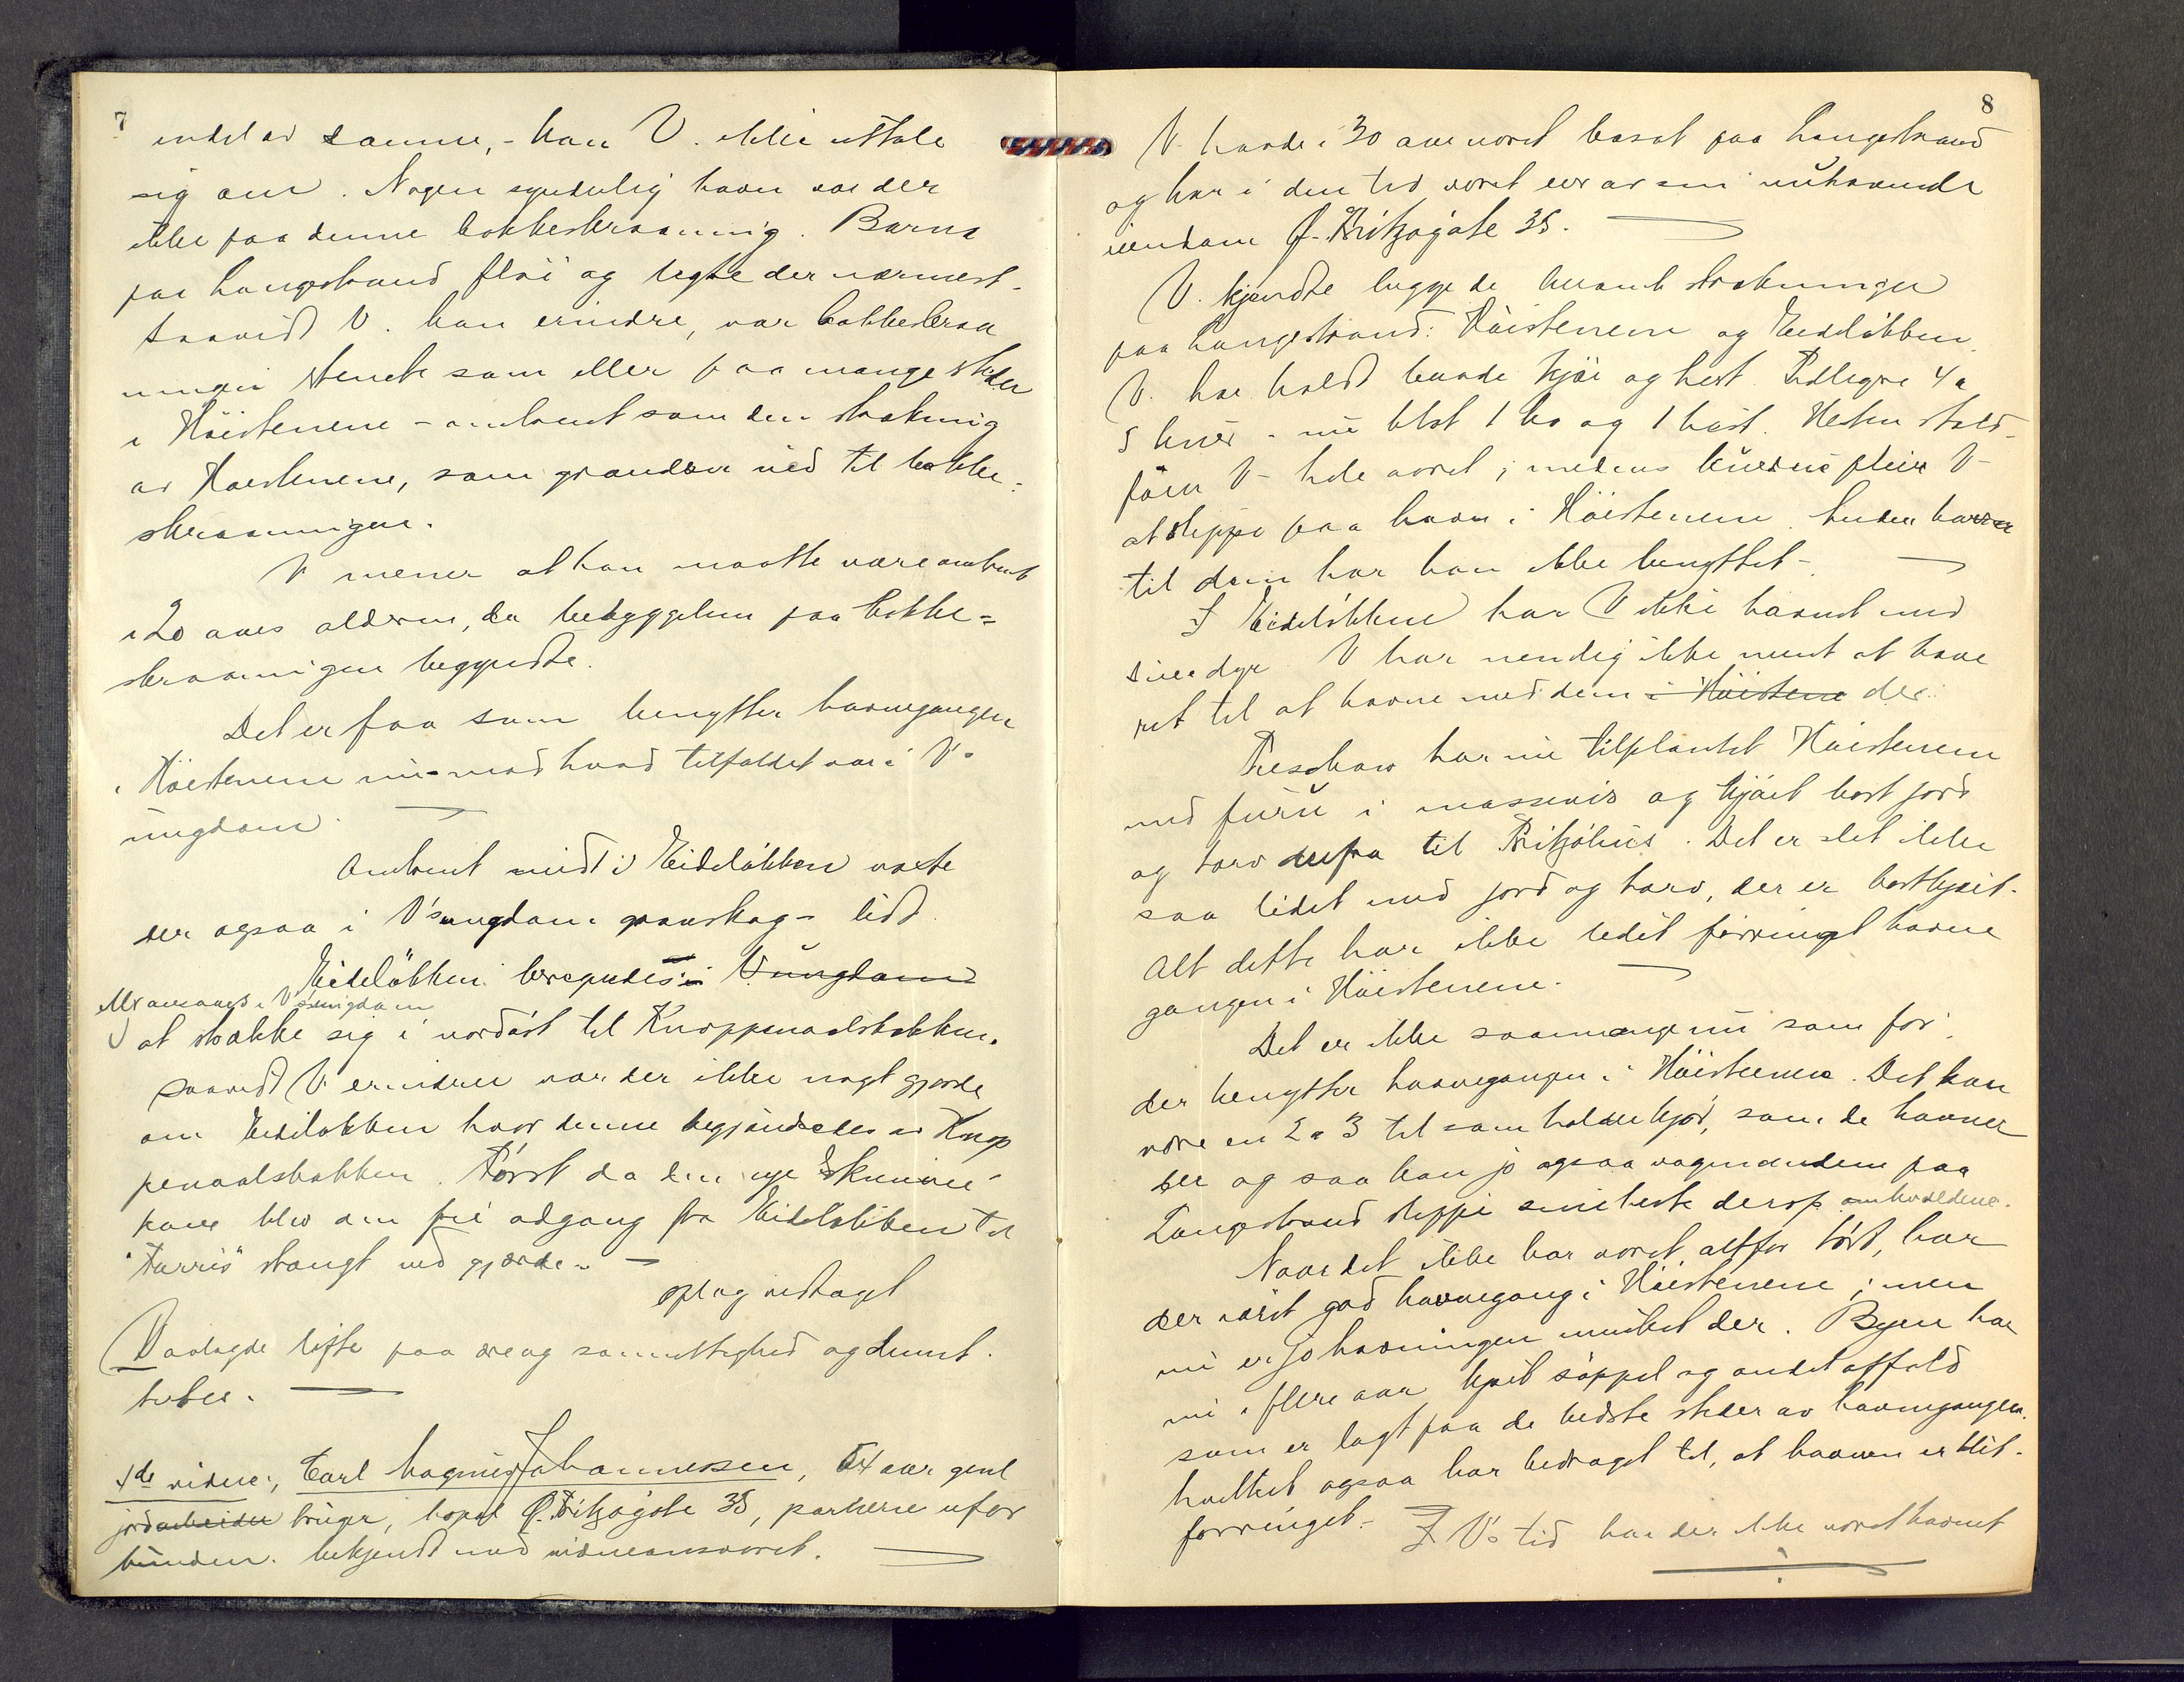 7
endel av samme, - kan V. ikke uttale
sig om. Nogen synderlig havn var der
ikke paa denne bakkeskraaning. Barna
paa Langestrand flöi og legte der nærmest.
Saavidt V. kan erindre, var bakkeskraa
ningen stenet som eller paa mange steder
i Höistenene - omtrent som den strækning
av Höistenene, som grændser ned til bakke-
skraaningen.
V mener at han maatte være omtrent
i 20 aars alderen, da bebyggelsen paa bakke=
skraaningen begyndte.
Det er faa som benytter havnegangen
i Höistenene nu mod hvad tilfældet var i V's
ungdom.
Omtrent midt i Eideløkken vokste
der ogsaa i V's ungdom granskog - lidt.
Eideløkken beregnedes i V's ungdom
V at strække sig i nordöst til Knappenaalsbakken.
Saavidt V. erindrer var der ikke nogt gjærde
om Eideløkken hvor denne begrændsedes av Knap
penaalsbakken. Först da den nye
kom blev den fri adgang fra Eideløkken til
"Farris" stængt ved gjærde. -
opl. og vedtaget
V avlagde löfte paa ære og samvittighed og dimit-
teres.
4de vidne, Carl Magnus Johannesen, 54 aar gml
jordarbeider bruger, bopæl Ø. Fritzøgate 35, parterne ufor
bunden. bekjendt med vidneansvaret.
8
V. havde i 30 aar været bosat paa Langestrand
og har i den tid været eier av sin nuhavende
eiendom Ø. Fritzøgate 35.
V. kjendte begge de nævnte strækninger
paa Langestrand: Höistenene og Eideløkken.
V. har holdt baade kjör og hest. Tidligere 4 a
5 kuer - nu blot 1 ko og 1 hest. Hesten stald-
forer V- hele aaret, medens kuerne pleier V-
at slippe paa havn i Höistenene. Anden havn
til dem har han ikke benyttet -
I Eideløkken har V ikke havnet med
sine dyr. V har nemlig ikke ment at have
ret til at havne med dem i Höistene der.
Treschow har nu tilplantet Höistenene
med furu i massevis og kjört bort jord
og torv derfra til Fritzöhus. Det er slet ikke
saa lidet med jord og torv, der er bortkjört.
Alt dette har ikke lidet forringet havne
gangen i Höistenene.
Det er ikke saamange nu som för,
der benytter havnegangen i Höistenene. Det kan
være en 2 a 3 til som holder kjör, som de havner
der og saa kan jo ogsaa vognmændene paa
Langestrand slippe sine heste derop om kvældene.
Naar det ikke har været altfor tört, har
der været god havnegang i Höistenene; men
nu er jo havningen mindsket der. Byen har
nu i flere aar kjört söppel og andet affald
som er lagt paa de bedste steder av havnegangen.
hvilket ogsaa har bidraget til, at havnen er blit
forringet. I V's tid har der ikke været havnet